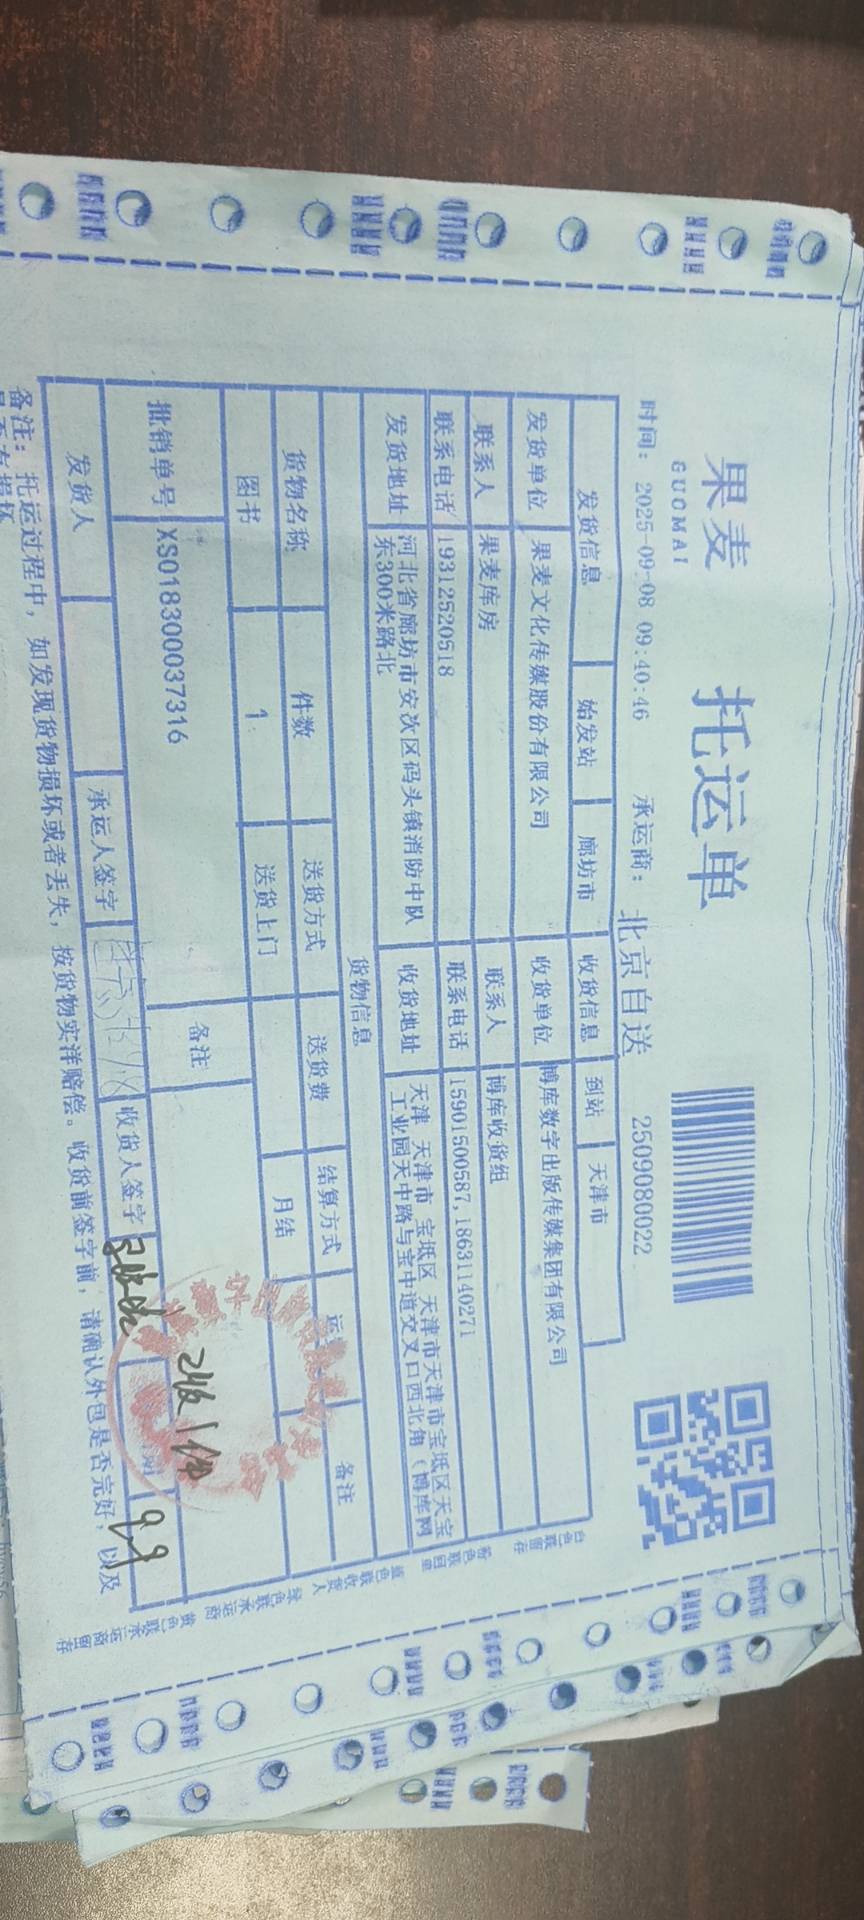 果麦
GUOMAI
托运单
时间: 2025-09-08 09:40:46 承运商: 北京自送 2509080022
发货信息 始发站 廊坊市 收货信息 到站 天津市
发货单位 果麦文化传媒股份有限公司 收货单位 博库数字出版传媒集团有限公司
联系人 果麦库房 联系人 博库收货组
联系电话 19312520518 联系电话 15901500587,18631140271
发货地址 河北省廊坊市安次区码头镇消防中队东300米路北 收货地址 天津 天津市 宝坻区 天津市天津市宝坻区天宝工业园天中路与宝中道交叉口西北角(博库网
货物信息
货物名称 件数 送货方式 送货费 结算方式 备注
图书 1 送货上门 月结
批销单号 XS018300037316 备注
收1件
发货人 承运人签字 收货人签字 9.9
备注: 托运过程中, 如发现货物损坏或者丢失, 按货物实洋赔偿。收货前签字前, 请确认外包是否完好, 以及
是否有损坏
白色联留存
粉色联回单
蓝色联收货人
绿色联承运商
黄色联承运商留存